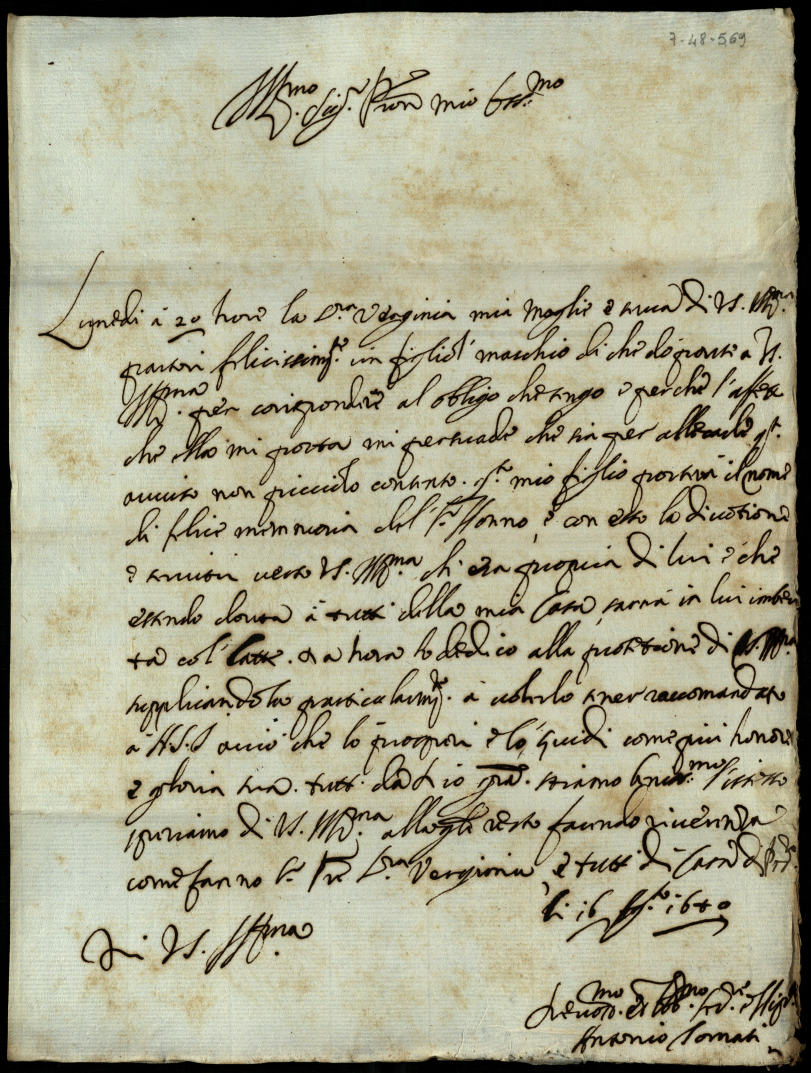 7-48-569
Ill.mo Sig.r Pron mio Oss.mo
Lunedi à 20 hore la S.ra Verginia mia Moglie e serva di V.S. Ill.ma
partorì felicissim.te un figliol maschio di che dò parte a V.S.
Ill.ma per corispondere al obligo che tengo e perche l'affetto
che ella mi porta mi persuade che sia per q.to
aviso non picciolo contento. q.to mio figlio porterà il nome
di felice memmoria del S.r Nonno, e con esso la divotione
e servitù verso V.S. Ill.ma ch' era propria di lui e che
essendo dovuta à tutti della mia Casa, sarrà in lui imbevu
ta col' latte. da hora lo dedico alla protetione di V.S. Ill.ma
supplicandola particularm.te à volerlo tener raccomandato
a N.S. acciò che lo prosperi e lo guidi come più honore
e gloria sua. tutti da Dio gra. stiamo l'istesso
speriamo di V.S. Ill.ma alla q.le resto facendo riverenza
come fanno S.r Pre S.ra Verginia e tutti di Casa di
li 16 1640
Di V.S. Ill.ma
Devot.mo et Obb.mo
Antonio